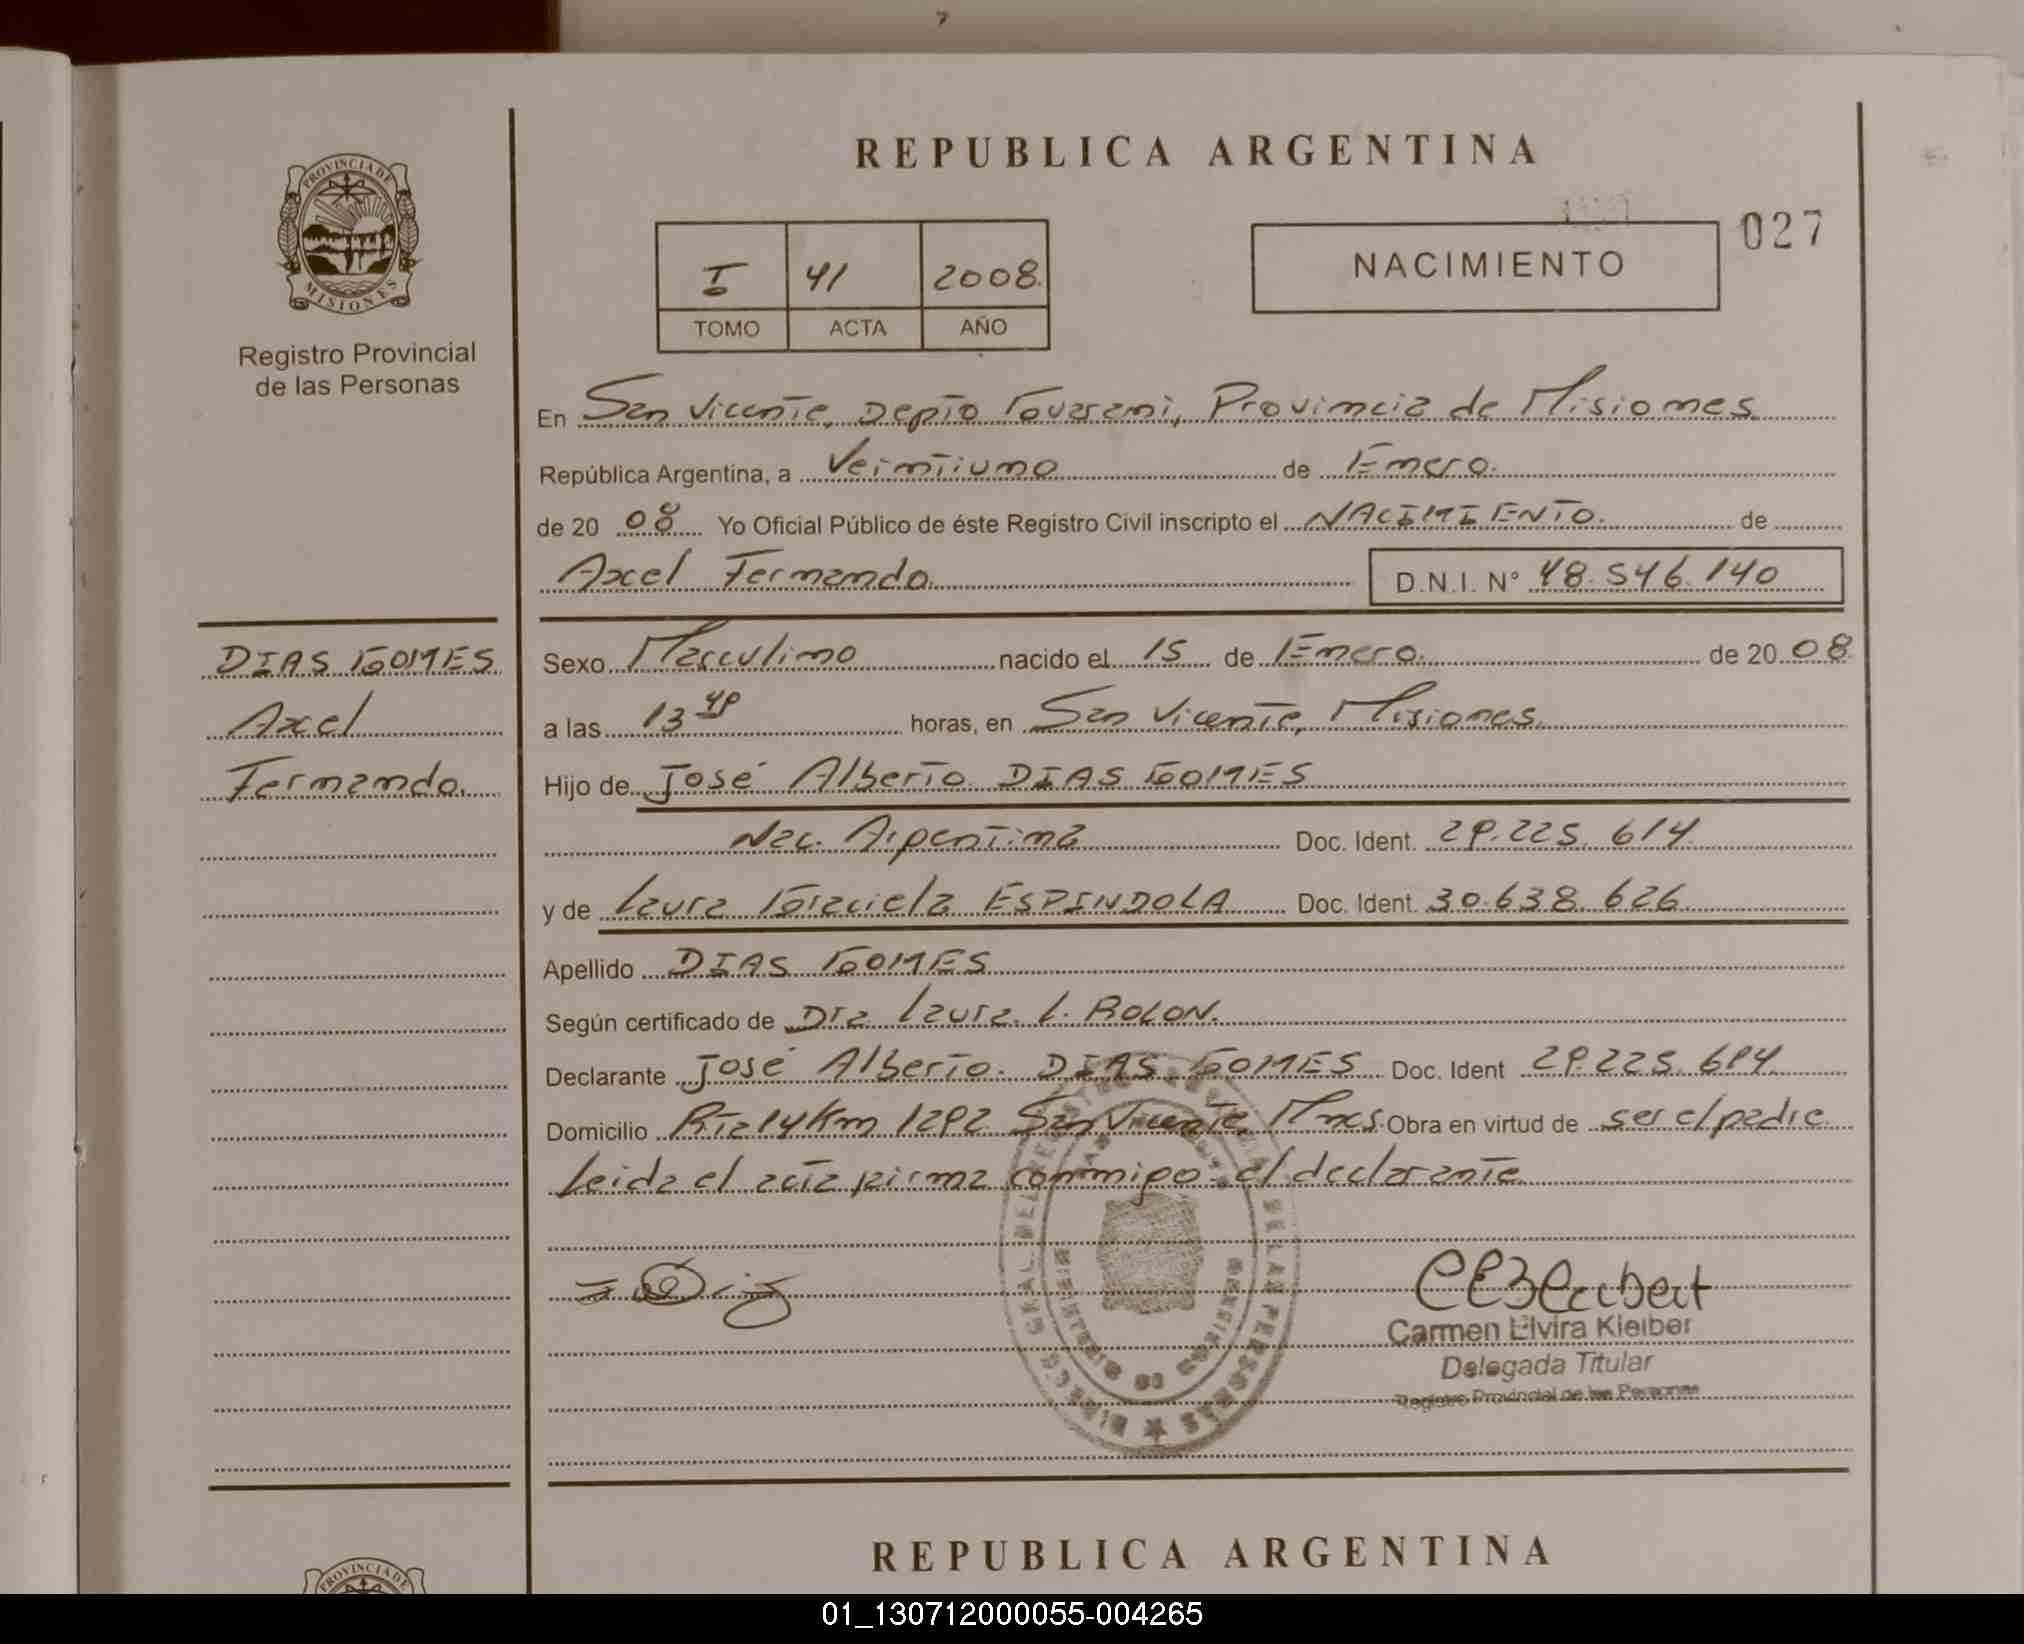 REPUBLICA ARGENTINA
PROVINCIA DE
MISIONES
Registro Provincial
de las Personas
I 41 2008
TOMO ACTA AÑO
NACIMIENTO
027
En San Vicente, Depto Guarani, Provincia de Misiones
República Argentina, a Veintiuno de Enero
de 20 08 Yo Oficial Público de éste Registro Civil inscripto el NACIMIENTO. de
Axel Fernando. D.N.I. N° 48.546.140
DIAS GOMES
Axel
Fernando.
Sexo Masculino nacido el 15 de Enero. de 20 08
a las 13 horas, en San Vicente, Misiones.
Hijo de José Alberto DIAS GOMES
Nac. Argentina Doc. Ident. 29.225.614
y de Laura Graciela ESPINDOLA Doc. Ident. 30.638.626
Apellido DIAS GOMES
Según certificado de Dra Laura L. ROLON.
Declarante José Alberto. DIAS GOMES Doc. Ident 29.225.614
Domicilio Rta 14 Km 1292 San Vicente, Mnes. Obra en virtud de ser el padre
Leida el acta firma conmigo el declarante
Carmen Elvira Kleiber
Delegada Titular
Registro Provincial de las Personas
REPUBLICA ARGENTINA
PROVINCIA DE
01_130712000055-004265